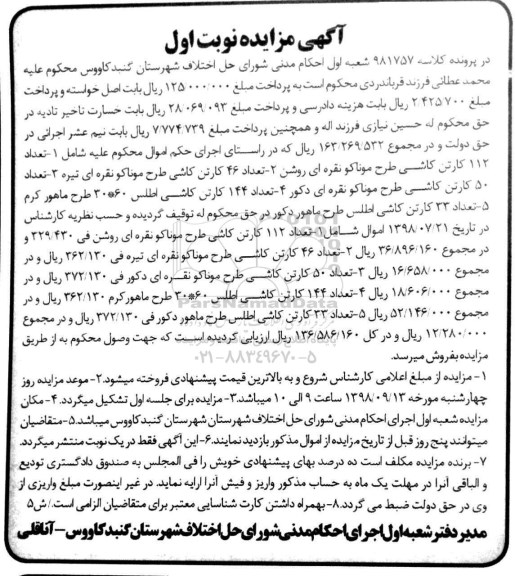 آگهی مزایده نوبت اول
در پرونده کلاسه ۹۸۱۷۵۷ شعبه اول احکام مدنی شورای حل اختلاف شهرستان گنبدکاووس محکوم علیه
محمد عطائی فرزند قرباندردی محکوم است به پرداخت مبلغ ۱۲۵/۰۰۰/۰۰۰ ریال بابت اصل خواسته و پرداخت
مبلغ ۲/۴۲۵/۷۰۰ ریال بابت هزینه دادرسی و پرداخت مبلغ ۲۸/۰۶۹/۰۹۳ ریال بابت خسارت تاخیر تادیه در
حق محکوم له حسین نیازی فرزند اله و همچنین پرداخت مبلغ ۷/۷۷۴/۷۳۹ ریال بابت نیم عشر اجرائی در
حق دولت و در مجموع ۱۶۳/۲۶۹/۵۳۲ ریال که در راستای اجرای حکم اموال محکوم علیه شامل ۱-تعداد
۱۱۲ کارتن کاشی طرح موناکو نقره ای روشن ۲-تعداد ۴۶ کارتن کاشی طرح موناکو نقره ای تیره ۳-تعداد
۵۰ کارتن کاشی طرح موناکو نقره ای دکور ۴-تعداد ۱۴۴ کارتن کاشی اطلس ۶۰*۳۰ طرح ماهور کرم
۵-تعداد ۳۳ کارتن کاشی اطلس طرح ماهور دکور در حق محکوم له توقیف گردیده و حسب نظریه کارشناس
در تاریخ ۱۳۹۸/۰۷/۲۱ اموال شامل ۱-تعداد ۱۱۲ کارتن کاشی طرح موناکو نقره ای روشن فی ۳۲۹/۴۳۰ و
در مجموع ۳۶/۸۹۶/۱۶۰ ریال ۲-تعداد ۴۶ کارتن کاشی طرح موناکو نقره ای تیره فی ۳۶۲/۱۳۰ ریال و در
مجموع ۱۶/۶۵۸/۰۰۰ ریال ۳-تعداد ۵۰ کارتن کاشی طرح موناکو نقره ای دکور فی ۳۷۲/۱۳۰ ریال و در
مجموع ۱۸/۶۰۶/۰۰۰ ریال ۴-تعداد ۱۴۴ کارتن کاشی اطلس ۶۰*۳۰ طرح ماهور کرم ۳۶۲/۱۳۰ ریال و در
مجموع ۵۲/۱۴۶/۰۰۰ ریال ۵-تعداد ۳۳ کارتن کاشی اطلس طرح ماهور دکور فی ۳۷۲/۱۳۰ ریال و در مجموع
۱۲/۲۸۰/۰۰۰ ریال و در کل ۱۳۶/۵۸۶/۱۶۰ ریال ارزیابی گردیده است که جهت وصول محکوم به از طریق
مزایده بفروش میرسد.
۰۲۱-۸۸۳۴۹۶۷۰-۵
۱- مزایده از مبلغ اعلامی کارشناس شروع و به بالاترین قیمت پیشنهادی فروخته میشود.۲-موعد مزایده روز
چهارشنبه مورخه ۱۳۹۸/۰۹/۱۳ ساعت ۹ الی ۱۰ میباشد.۳-مزایده برای جلسه اول تشکیل میگردد.۴-مکان
مزایده شعبه اول اجرای احکام مدنی شورای حل اختلاف شهرستان شهرستان گنبدکاووس میباشد.۵-متقاضیان
میتوانند پنج روز قبل از تاریخ مزایده از اموال مذکور بازدید نمایند.۶-این آگهی فقط در یک نوبت منتشر میگردد.
۷- برنده مزایده مکلف است ده درصد بهای پیشنهادی خویش را فی المجلس به صندوق دادگستری تودیع
و الباقی آنرا در مهلت یک ماه به حساب مذکور واریز و فیش آنرا ارایه نماید. در غیر اینصورت مبلغ واریزی از
وی در حق دولت ضبط می گردد.۸-بهمراه داشتن کارت شناسایی معتبر برای متقاضیان الزامی است./ش۵
مدیر دفتر شعبه اول اجرای احکام مدنی شورای حل اختلاف شهرستان گنبدکاووس - آناقلی